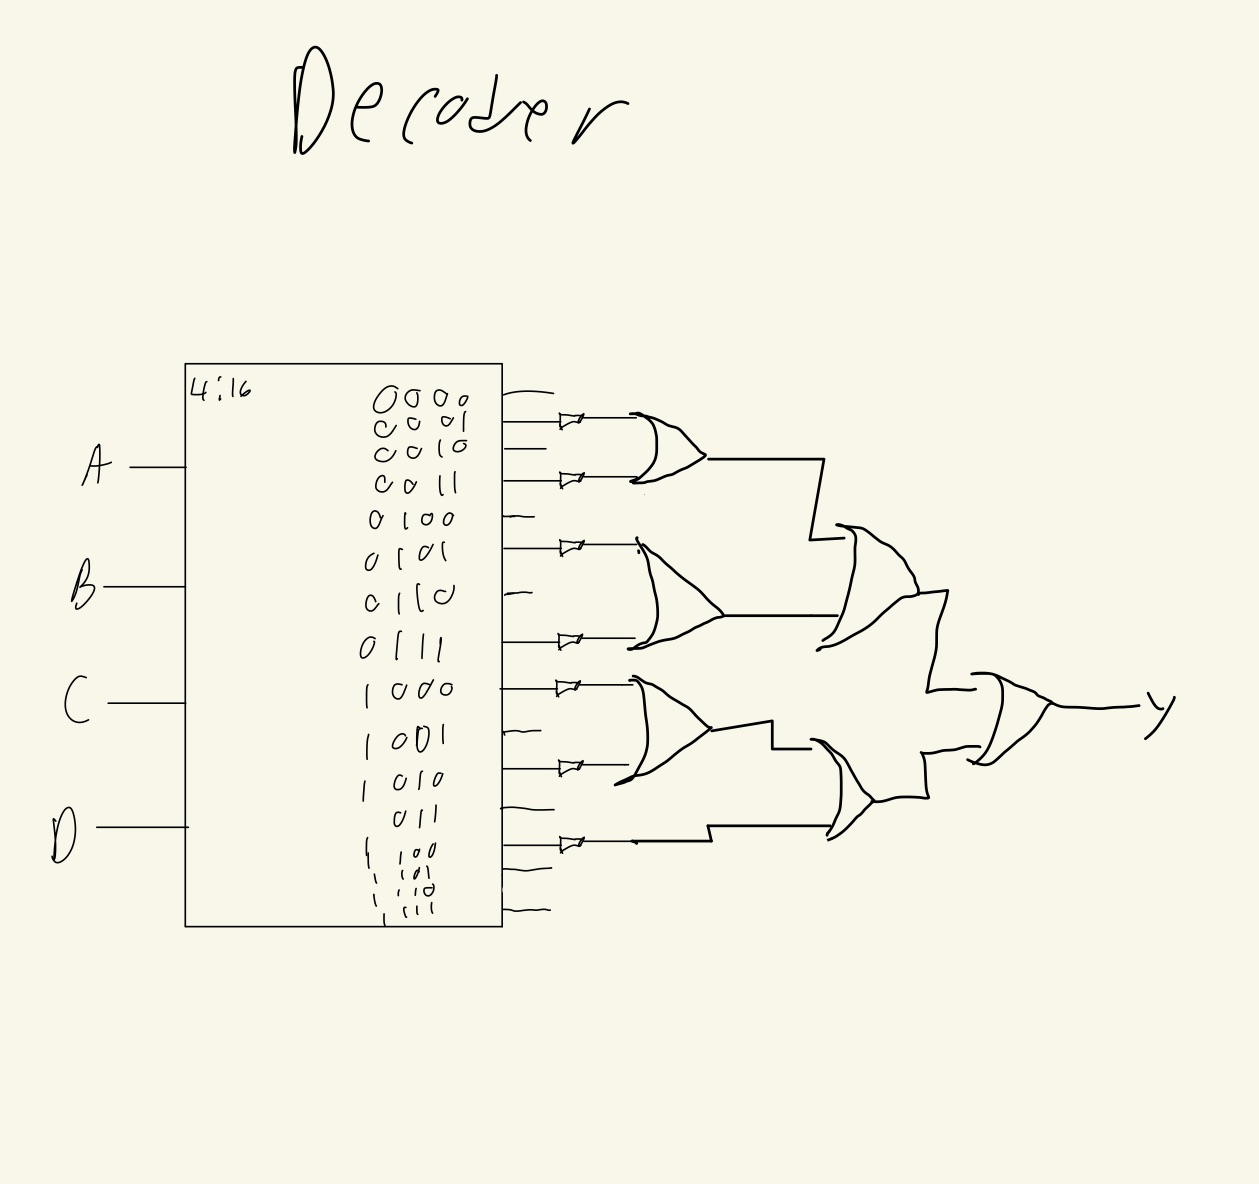 Decoder
4:16
0000
0001
0010
0011
0100
0101
0110
0111
1000
1001
1010
1011
1100
1101
1110
1111
A
B
C
D
y